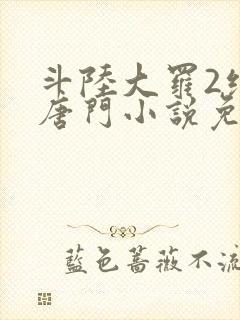 斗陸大羅2
唐門小說免
藍色薔薇不流